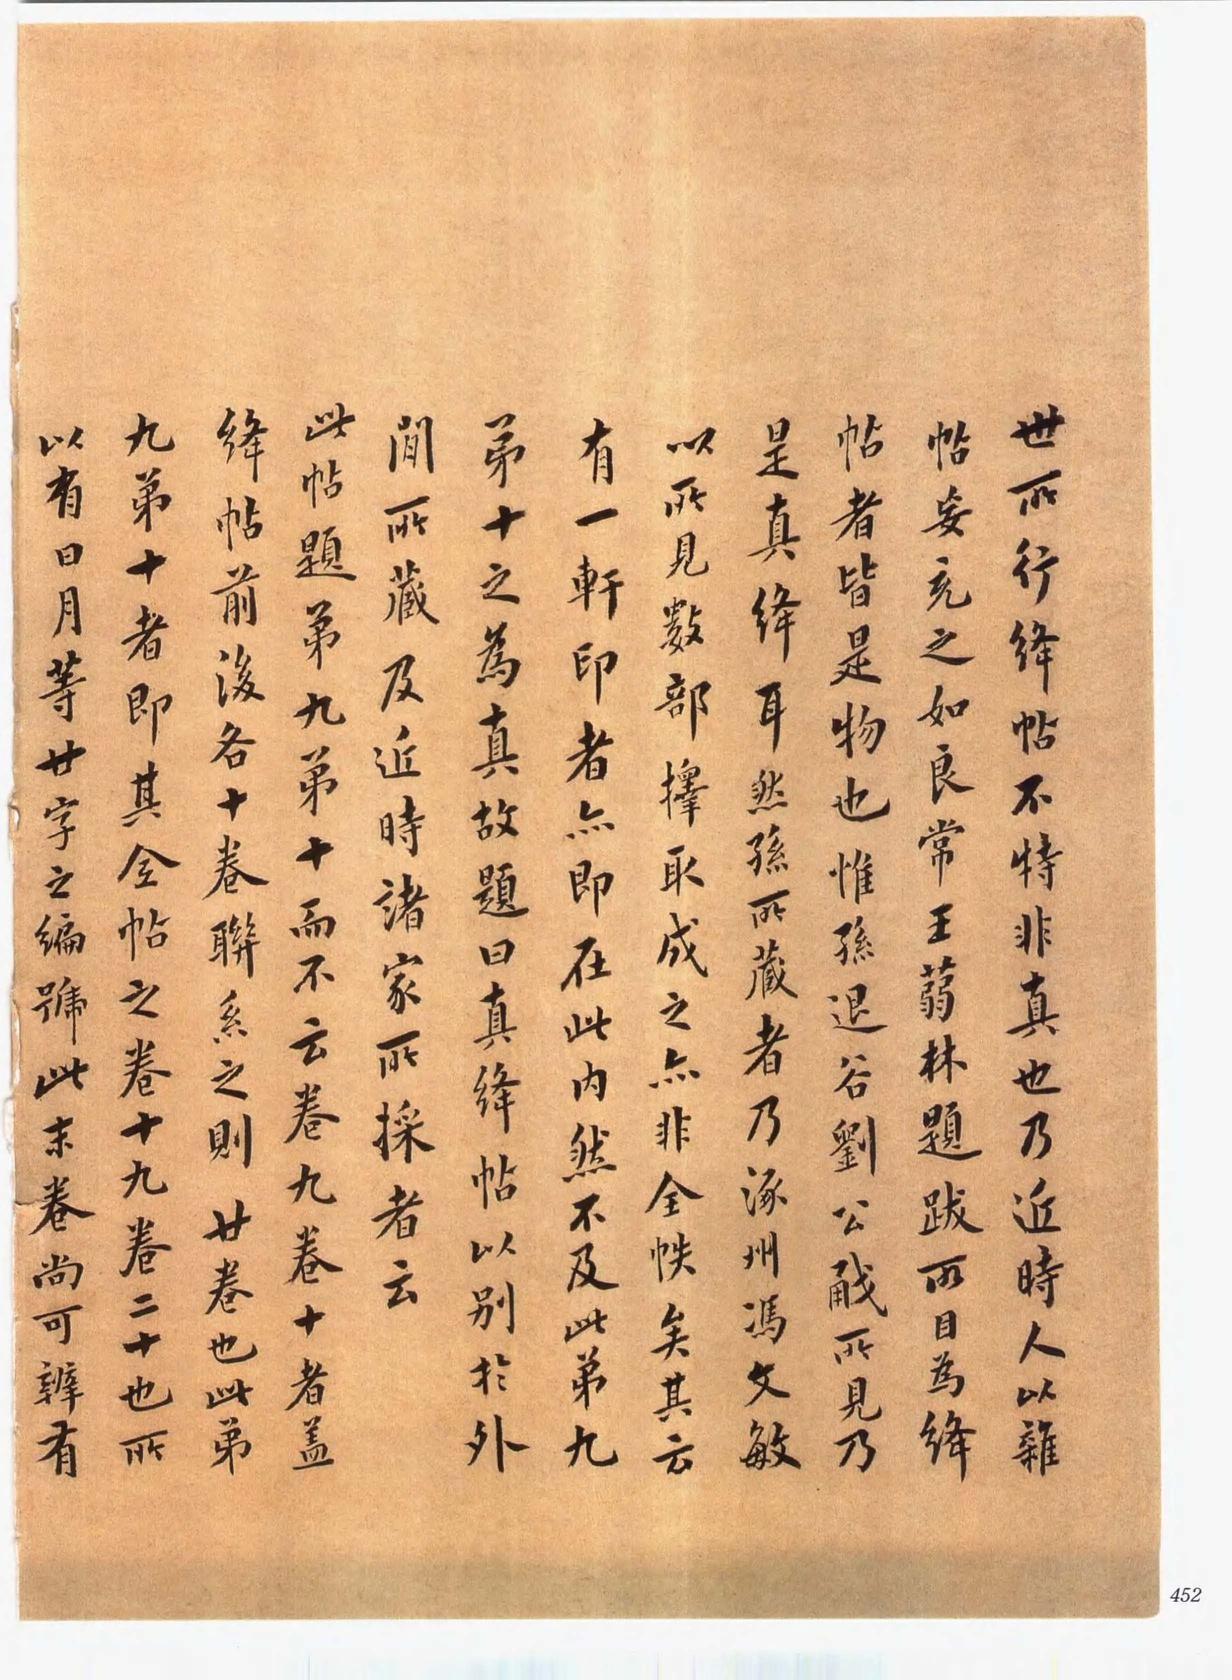 世所行絳帖不特非真也乃近時人以雜
帖妄充之如良常王蒻林題跋所目為絳
帖者皆是物也惟孫退谷劉公㦷所見乃
是真絳耳然孫所藏者乃涿州馮文敏
以所見數部擇取成之亦非全帙矣其云
有一軒印者亦即在此内然不及此第九
第十之為真故題曰真絳帖以别於外
間所藏及近時諸家所採者云
此帖題第九第十而不云卷九卷十者盖
絳帖前後各十卷聯系之則廿卷也此第
九第十者即其全帖之卷十九卷二十也所
以有日月等廿字之編號此末卷尚可辨有
452